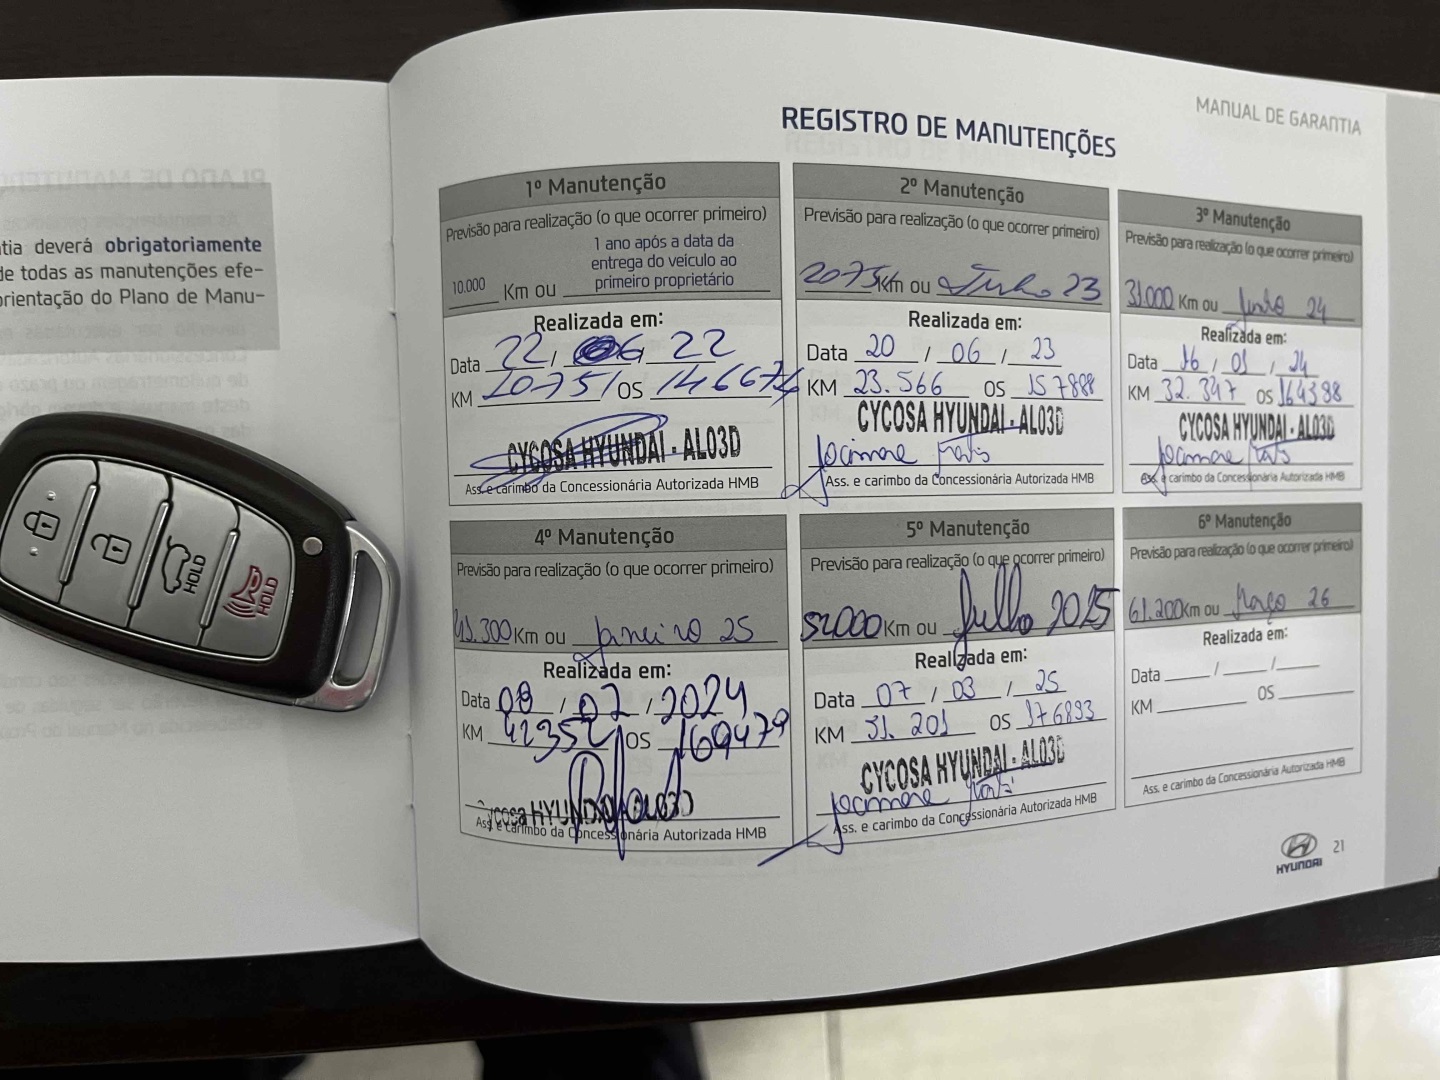 tia deverá obrigatoriamente
de todas as manutenções efe-
orientação do Plano de Manu-
MANUAL DE GARANTIA
REGISTRO DE MANUTENÇÕES
1º Manutenção
Previsão para realização (o que ocorrer primeiro)
10.000 Km ou 1 ano após a data da
entrega do veículo ao
primeiro proprietário
Realizada em:
Data 22 / 06 / 22
KM 10751 OS 146674
CYCOSA HYUNDAI - AL03D
Ass. e carimbo da Concessionária Autorizada HMB
2º Manutenção
Previsão para realização (o que ocorrer primeiro)
2075 Km ou Junho 23
Realizada em:
Data 20 / 06 / 23
KM 23.566 OS 157888
CYCOSA HYUNDAI - AL03D
Ass. e carimbo da Concessionária Autorizada HMB
3º Manutenção
Previsão para realização (o que ocorrer primeiro)
31.000 Km ou Junho 24
Realizada em:
Data 16 / 01 / 24
KM 32.347 OS 164398
CYCOSA HYUNDAI - AL03D
Ass. e carimbo da Concessionária Autorizada HMB
4º Manutenção
Previsão para realização (o que ocorrer primeiro)
Km ou Janeiro 25
Realizada em:
Data 08 / 07 / 2024
KM 42352 OS 169479
Cycosa HYUNDAI AL03D
Ass. e carimbo da Concessionária Autorizada HMB
5º Manutenção
Previsão para realização (o que ocorrer primeiro)
52000 Km ou Julho 2025
Realizada em:
Data 07 / 03 / 25
KM 51.201 OS 176893
CYCOSA HYUNDAI - AL03D
Ass. e carimbo da Concessionária Autorizada HMB
6º Manutenção
Previsão para realização (o que ocorrer primeiro)
61.200 Km ou Março 26
Realizada em:
Data / /
KM OS
Ass. e carimbo da Concessionária Autorizada HMB
HYUNDAI 21
HOLD
HOLD